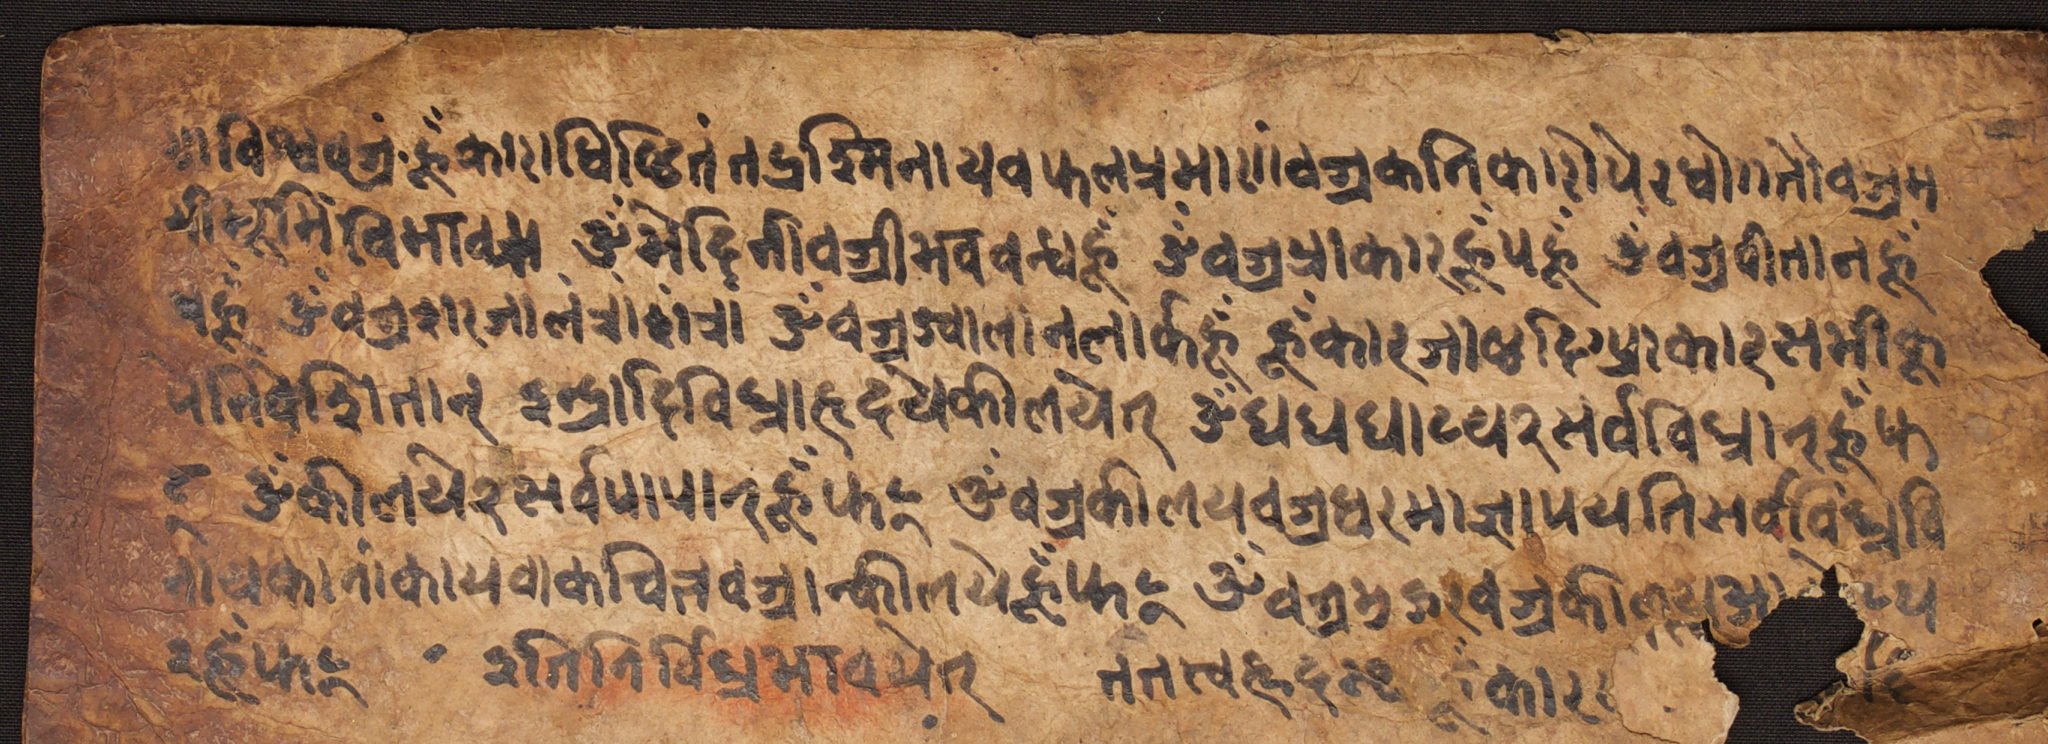 ण विश्ववज्रं हूँकाराधिष्ठितं तद्रश्मिना यवफलप्रमाणं वज्रकनिकारोपेरधोगतो वज्रम
यीम्भूमिं विभावय ॐ मेदिनीवज्रीभवबन्धहूँ ॐ वज्रप्राकारहूँपहूँ ॐ वज्रवीतानहूँ
षहूँ ॐ वज्रशरजालं त्रां शं त्रा ॐ वज्रज्वालानलार्कहूँ हूँकारजाष्टदिग्प्राकारसमीकू
पेनिवेशितान् इन्द्रादिविघ्नाहृदये कीलयेत् ॐ घघघाटय२सर्वविघ्नान्हूँफ
ट् ॐ कीलये२सर्वपापान्हूँफट् ॐ वज्रकीलयवज्रधरमाज्ञापयतिसर्वविंघ्नवि
नायकानांकायवाकचित्तवज्रान्कीलयेहूँफट् ॐ वज्रमुद्गरवज्रकीलय आ टय
२हूँफट् इतिनिर्विघ्नभावयेत् ततस्वहृद कार